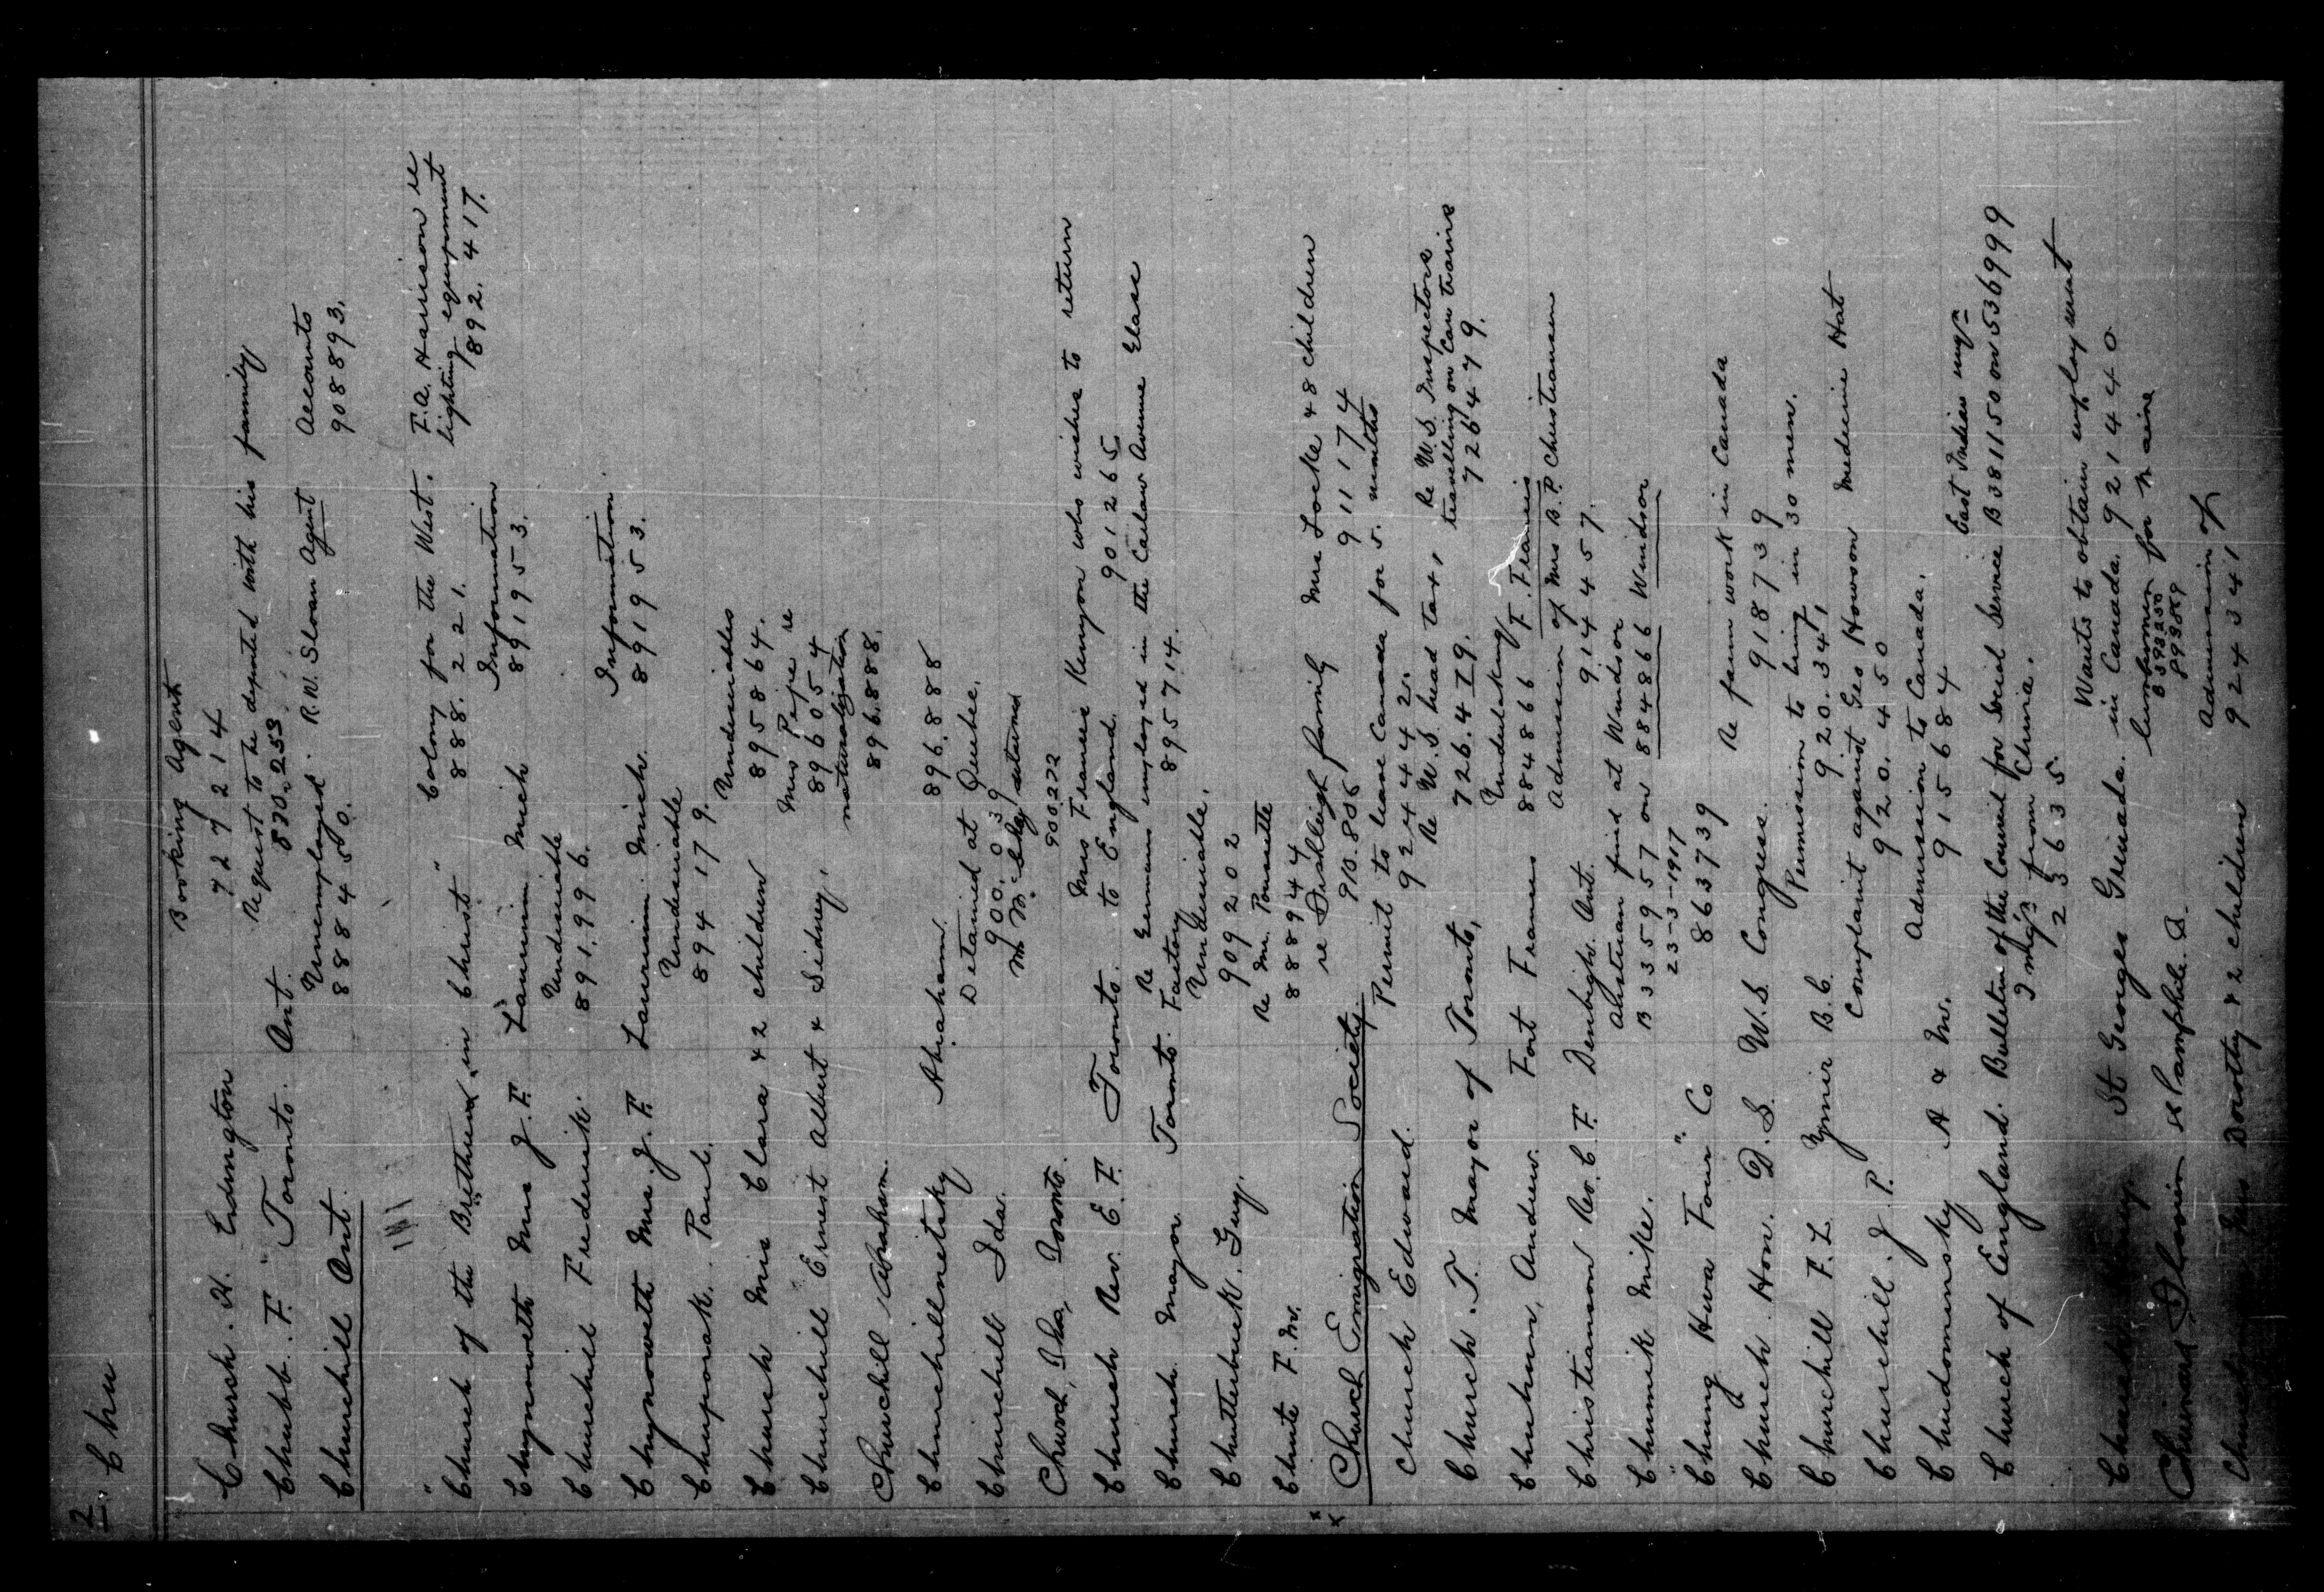 2. Chu
Booking Agent
Church. H. Ludington 727214
Request to be deported with his family
Chubb. F. Toronto. Ont. 830.253
Unemployed. R.W. Sloan Agent Accounts
Churchill Ont. 888450. 908893.
"Church of the Brethren in Christ" Colony for the West. F.A. Harrison re
888.221. lighting equipment
892.417.
Information
Chynoweth Mrs J.F. Laurium Mich 891953.
Undesirable
Churchill Frederick. 891.996.
Information
Chynoweth Mrs. J.F. Laurium Mich. 891953.
Undesirable
Chuporak. Paul. 894179.
Undesirables
Church Mrs Clara & 2 children 895864.
Mrs Pepe re
Churchill Ernest Albert & Sidney. 896054
naturalization
Churchill Abraham. 896.888.
Churchillnetsky Abraham. 896.888
Detained at Quebec.
Churchill Ida. 900.039
returned
Church, Ika, Toronto. 900272
Mrs Francis Kenyon who wishes to return
Church Rev. E.F. Toronto. to England. 901265
Re Germans employed in the Carlaw Avenue
Church Mayor Toronto. Factory 895714.
Undesirable.
Chutterbuck. Guy. 909202
Re Mr.
Chute F. M. 888944
re family Mrs Locke & 8 children
Church Emigration Society. 910.806 911174
Permit to leave Canada for 5. months
Church Edward. 924442.
Re U.S. head tax & Re U.S. Inspectors
travelling on Can trains
Church. T. Mayor of Toronto, 726.479. 726479.
Undertaking
Fort Frances 884866 F. Frances
Admission of Mrs B.P. Christiansen
Christianson Rev. C.F. Denbigh. Ont. 914457.
Austrian find at Windsor
Chumik Mike. B335957 on 884866 Windsor
23-3-1917
"Chung Hwa Four" Co 863739
Re farm work in Canada
Church. Hon. D.S. U.S. Congress. 918739
Permission to bring in 30 men.
Churchill F.L. Ymir B.C. 920.341
Complaint against Geo Howson Medicine Hat
Churchill. J. P. 920.450
Admission to Canada.
Chudominsky A & M. 915684
East Indian
Church of England. Bulletin of the Council for Social Service B381150 on 536999
from China.
23635
Wants to obtain employment
St Georges Grenada. in Canada. 921440
lumbermen for
Chuinard St Pamphile. 893250
893889
Admission of
Mrs Dorothy & 2 children 924341